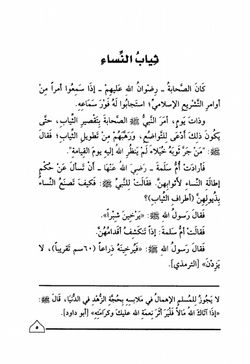 ثِيَابُ النِّسَاءِ
كَانَ الصَّحَابَةُ ـ رِضْوَانُ اللهِ عَلَيْهِمْ ـ إِذَا سَمِعُوا أَمْراً مِنْ
أَوَامِرِ التَّشْرِيعِ الإِسْلَامِيِّ؛ اسْتَجَابُوا لَهُ فَوْرَ سَمَاعِهِ.
وَذَاتَ يَوْمٍ، أَمَرَ النَّبِيُّ ﷺ الصَّحَابَةَ بِتَقْصِيرِ الثِّيَابِ، حَتَّى
يَكُونَ ذَلِكَ أَدْعَى لِلتَّوَاضُعِ، وَرَهَّبَهُمْ مِنْ تَطْوِيلِ الثِّيَابِ؛ فَقَالَ
ﷺ: «مَنْ جَرَّ ثَوْبَهُ خُيَلَاءَ لَمْ يَنْظُرِ اللهُ إِلَيْهِ يَوْمَ الْقِيَامَةِ».
فَأَرَادَتْ أُمُّ سَلَمَةَ ـ رَضِيَ اللهُ عَنْهَا ـ أَنْ تَسْأَلَ عَنْ حُكْمِ
إِطَالَةِ النِّسَاءِ لأَثْوَابِهِنَّ. فَقَالَتْ لِلنَّبِيِّ ﷺ: فَكَيْفَ تَصْنَعُ النِّسَاءُ
بِذُيُولِهِنَّ (أَطْرَافِ الثِّيَابِ)؟
فَقَالَ رَسُولُ اللهِ ﷺ: «يُرْخِينَ شِبْراً».
فَقَالَتْ أُمُّ سَلَمَةَ: إِذاً تَنْكَشِفُ أَقْدَامُهُنَّ.
فَقَالَ رَسُولُ اللهِ ﷺ: «فَيُرْخِينَهُ ذِرَاعاً (٦٠سم تقريباً)، لَا
يَزِدْنَ» [الترمذي].
لَا يَجُوزُ لِلْمُسْلِمِ الإِهْمَالُ فِي مَلَابِسِهِ بِحُجَّةِ الزُّهْدِ فِي الدُّنْيَا، قَالَ ﷺ:
«إِذَا آتَاكَ اللهُ مَالاً فَلْيُرَ أَثَرُ نِعْمَةِ اللهِ عَلَيْكَ وَكَرَامَتِهِ» [أبو داود].
٥